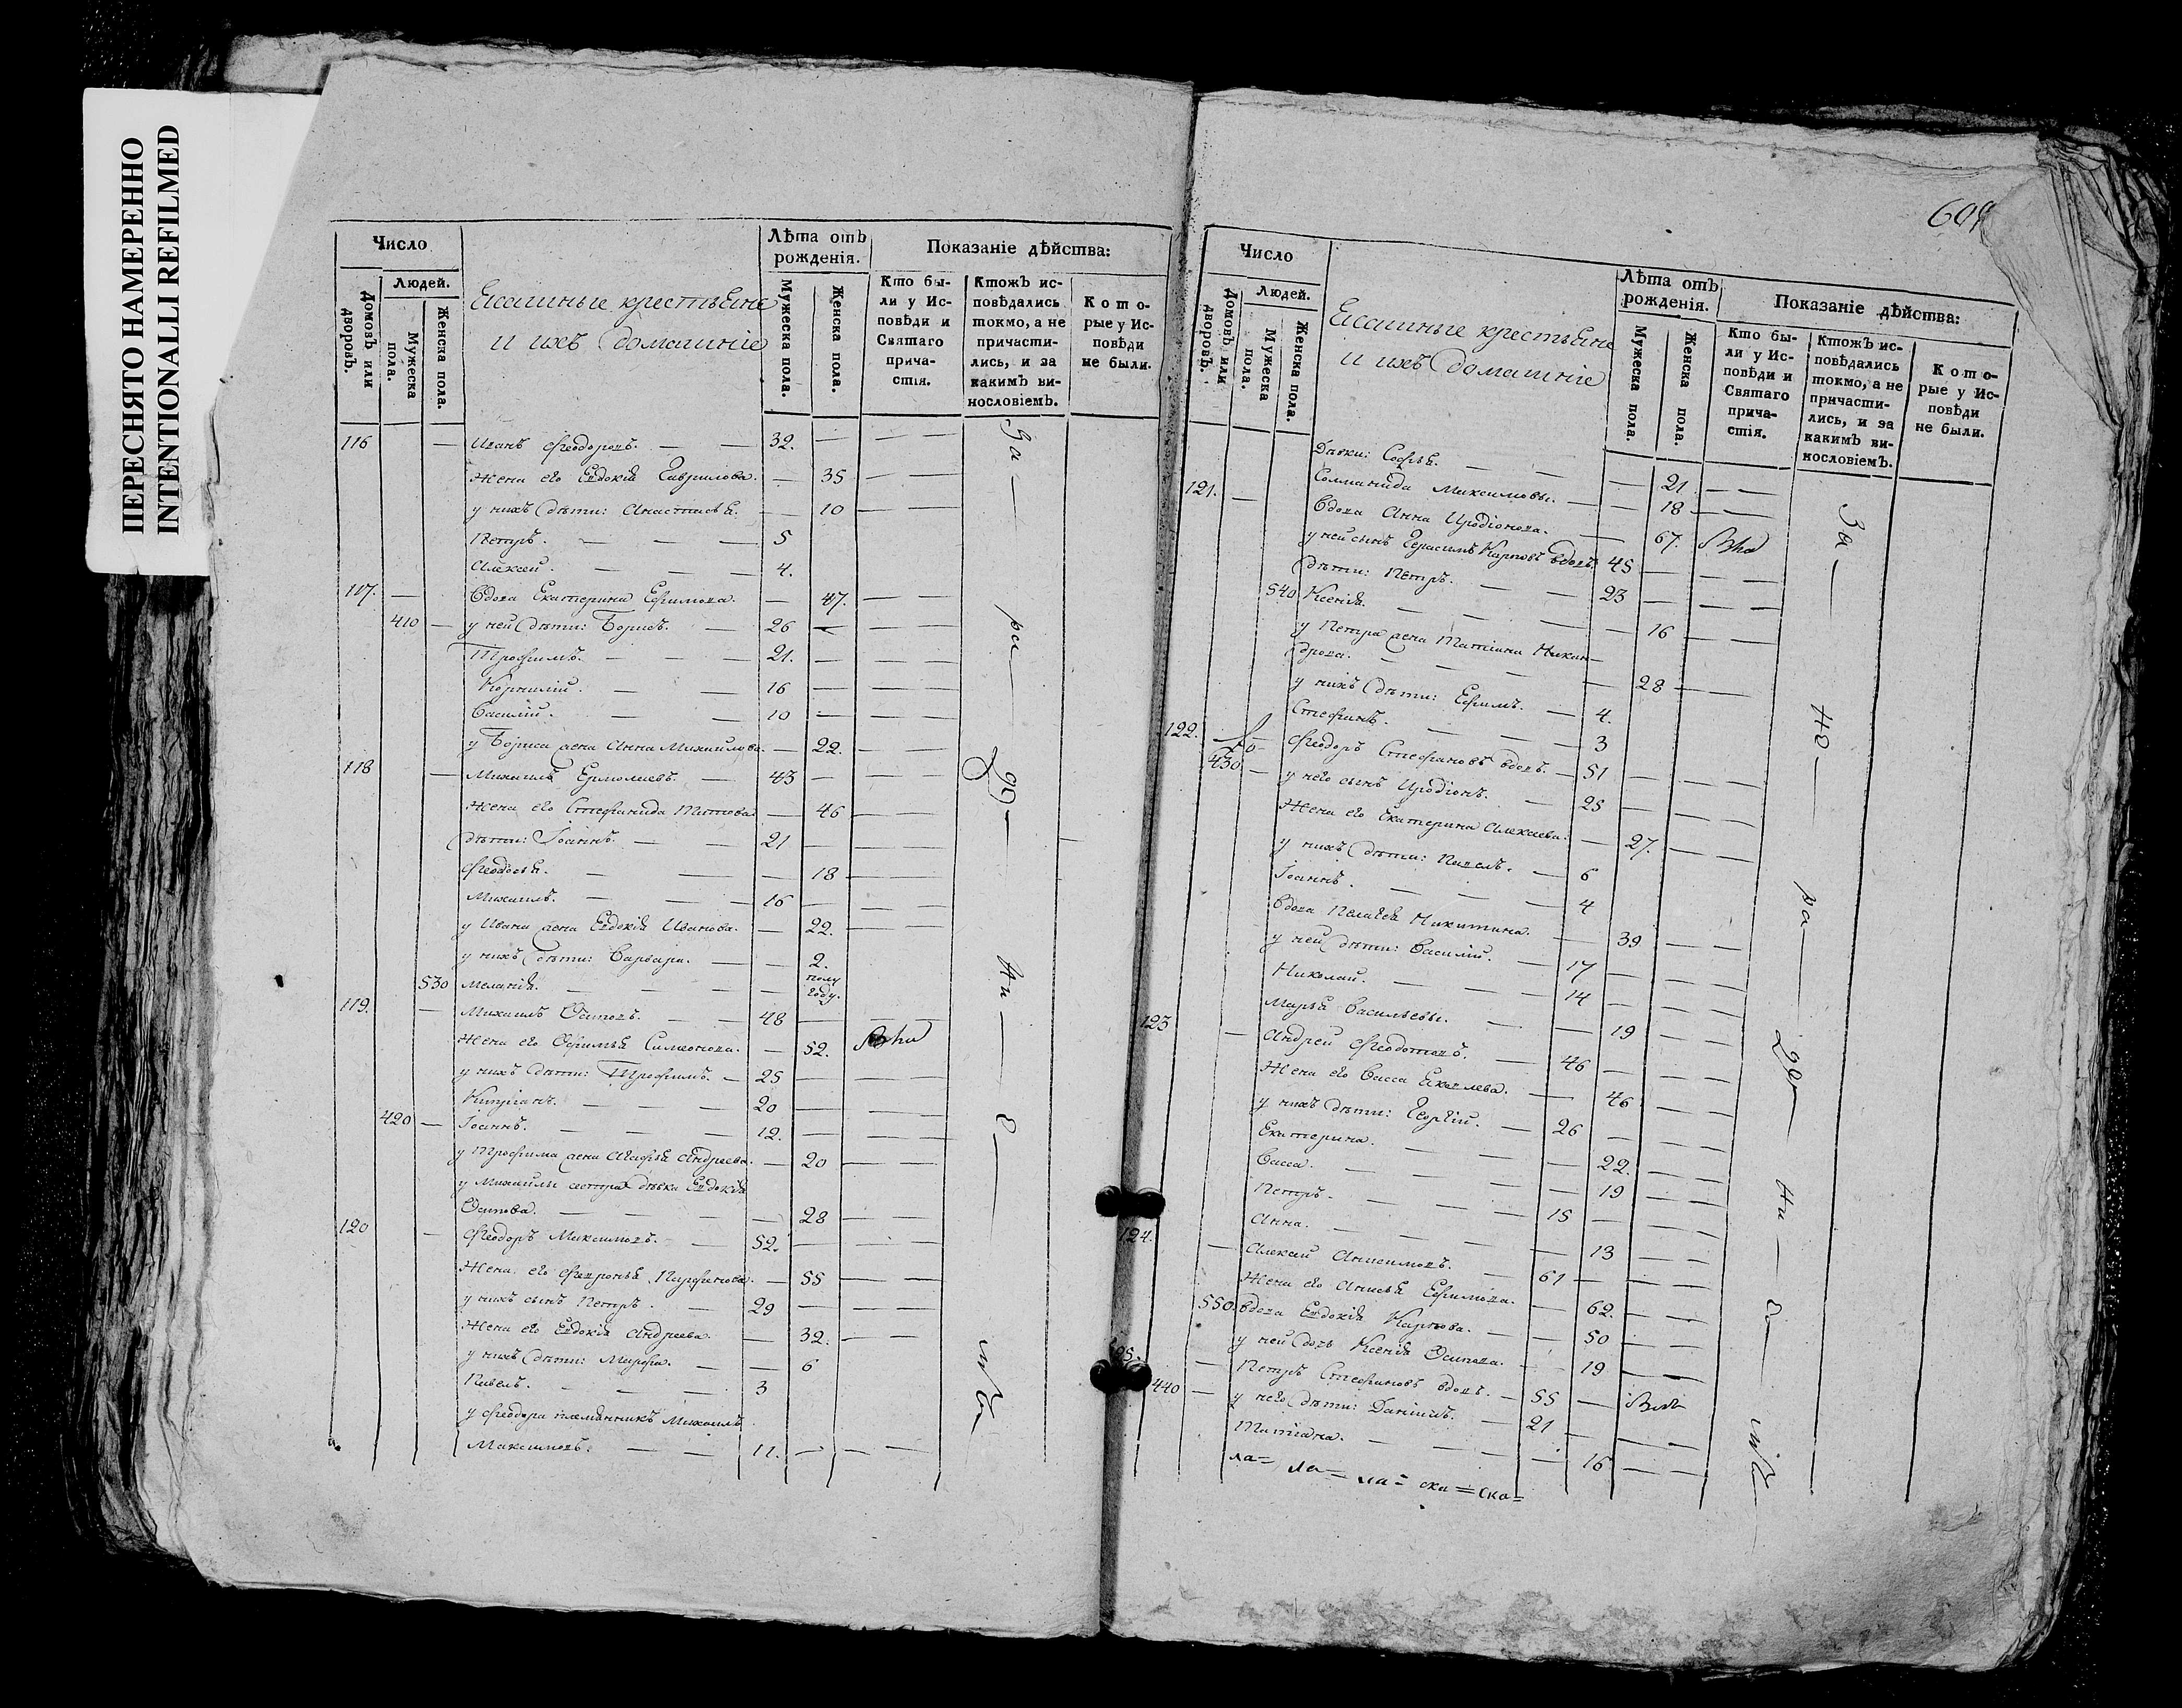 ПЕРЕСНЯТО НАМЕРЕННО
INTENTIONALLI REFILMED
Число
Людей.
Домовъ или дворовъ.
Мужеска пола.
Женска пола.
Ясашные крестьяне
и ихъ домашніе
Лѣта отъ рожденія.
Мужеска пола.
Женска пола.
Показаніе дѣйства:
Кто были у Исповѣди и Святаго причастія.
Ктожъ исповѣдались токмо, а не причастились, и за какимъ винословіемъ.
Которые у Исповѣди не были.
116 Иванъ Феодоровъ. 32.
Жена его Евдокія Гаврилова. 35
у нихъ дѣти: Анастасья. 10
Петръ. 5
Алексѣй. 4.
117. Вдова Екатерина Ефимова. 47.
410 у ней дѣти: Борисъ. 26
Трофимъ. 21.
Корнилій. 16
Василій. 10
у Бориса жена Анна Михайлова. 22.
118 Михаилъ Ермолаевъ. 43
Жена его Стефанида Титова. 46
дѣти: Іоаннъ. 21
Феодосья. 18
Михаилъ. 16
у Ивана жена Евдокія Иванова. 22.
у нихъ дѣти: Варвара. 2.
530 Меланія. полу году.
119. Михаилъ Осиповъ. 48
Жена его Офимья Симеонова. 52.
у нихъ дѣти: Трофимъ. 25
Кипріанъ. 20
420 Іоаннъ. 12.
у Трофима жена Агафья Андреева. 20
у Михаилы сестра дѣвка Евдокія
Осипова. 28
120 Феодоръ Максимовъ. 52.
Жена его Февронья Парфенова. 55
у нихъ сынъ Петръ. 29
Жена его Евдокія Андреева. 32.
у нихъ дѣти: Марфа. 6
Павелъ. 3
у Феодора племянникъ Михаилъ
Максимовъ. 11.
За
ра
Число
Людей.
Домовъ или дворовъ.
Мужеска пола.
Женска пола.
Ясашные крестьяне
и ихъ домашніе
Лѣта отъ рожденія.
Мужеска пола.
Женска пола.
Показаніе дѣйства:
Кто были у Исповѣди и Святаго причастія.
Ктожъ исповѣдались токмо, а не причастились, и за какимъ винословіемъ.
Которые у Исповѣди не были.
Дѣвки: Софья. 21
Соломанида Максимовы. 18
121. Вдова Анна Иродіонова. 67.
у ней сынъ Герасимъ Карповъ вдовъ. 45
дѣти: Петръ. 23
540 Ксенія. 16
у Петра жена Татіана Никан-
дрова. 28
у нихъ дѣти: Ефимъ. 4.
Стефанъ. 3
122. Феодоръ Стефановъ вдовъ. 51
430 у него сынъ Иродіонъ. 25
Жена его Екатерина Алексѣева. 27.
у нихъ дѣти: Павелъ. 6
Іоаннъ. 4
Вдова Пелагея Никитина. 39
у ней дѣти: Василій. 17
Николай. 14
Марья Васильевы. 19
123 Андрей Феодотовъ. 46
Жена его Васса Яковлева. 46
у нихъ дѣти: Георгій. 26
Екатерина. 22.
Васса. 19
Петръ. 15
Анна. 13
124. Алексѣй Анисимовъ. 61
Жена его Анисья Ефимова. 62.
550. Вдова Евдокія Карпова. 50
у ней дочь Ксенія Осипова. 19
Петръ Стефановъ вдовъ. 55
440 у него дѣти: Даніилъ. 21
Татіана. 16
За
ра